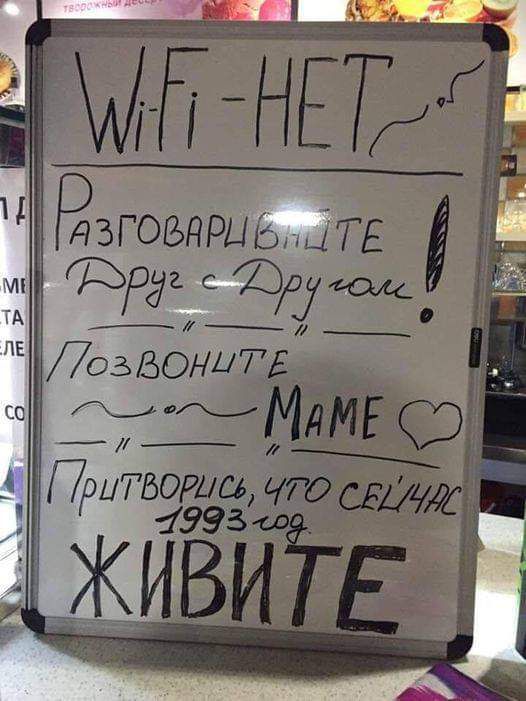 творожный десерт
Wi-Fi - НЕТ
РАЗГОВАРИВАЙТЕ
Друг с Другом!
ПОЗВОНИТЕ
МАМЕ
ПРИТВОРИСЬ, ЧТО СЕЙЧАС
1993 год
ЖИВИТЕ